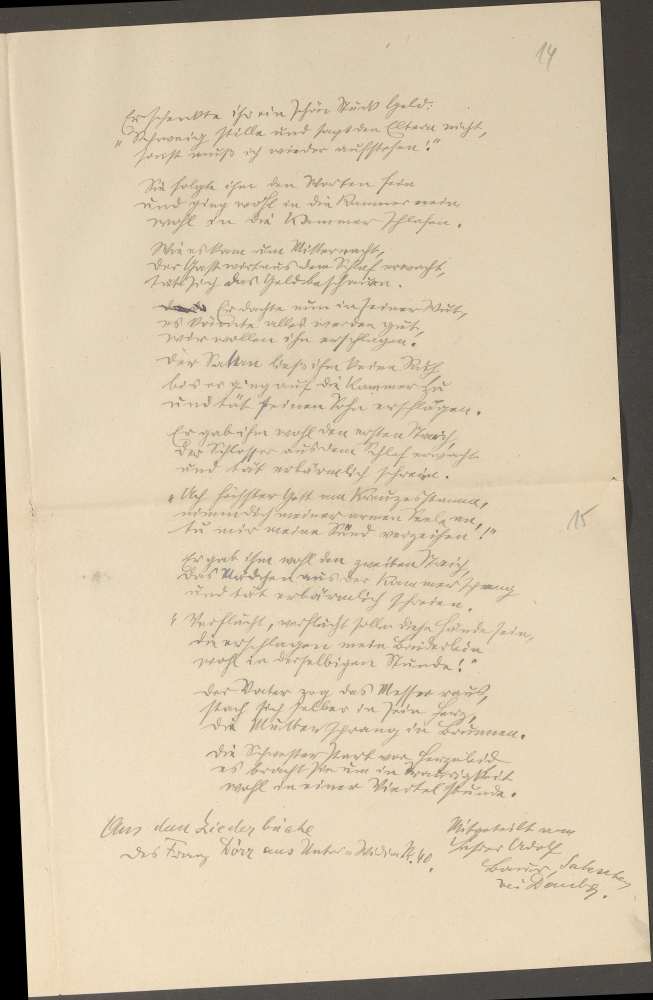 14
Er schenkte ihr ein schön Stück Geld:
"Schweig stille und sagt den Eltern nicht,
sonst muß ich wieder aufstehen!"
Sie folgte ihm den Worten sein
und ging wohl in die Kammer
wohl in die Kammer schlafen.
Wie es kam um Mitternacht,
der Gastwirt aus dem Schlaf erwacht,
tät sich das Geld beschauen.
Er dachte nun in seiner Wut,
es könnte alles werden gut,
wir wollen ihn erschlagen.
Der Satan ließ ihm keine Ruh,
bis er ging auf die Kammer zu
und tät seinen Sohn erschlagen.
Er gab ihm wohl den ersten Streich,
der Schlosser aus dem Schlaf erwacht
und tät erbärmlich schreien.
"Ach höchster Gott am Kreuzesstamm,
nimm dich meiner armen Seele an,
tu mir meine Sünd verzeihen!"
15
Er gab ihm wohl den zweiten Streich,
das Mädchen aus der Kammer sprang
und tät erbärmlich schreien.
"Verflucht, verflucht sollen diese Hände sein,
die erschlagen mein Brüderlein
wohl in derselbigen Stunde!"
Der Vater zog das Messer raus,
stach sich selber in sein Herz,
die Mutter sprang in Brunnen.
Die Schwester starb vor Herzeleid
es bracht sie um in Traurigkeit
wohl in einer Viertelstunde.
Aus dem Liederbuche
des Franz Dörr aus Unter- Nr. 40.
Mitgeteilt von
Lehrer Adolf
Baur,
bei